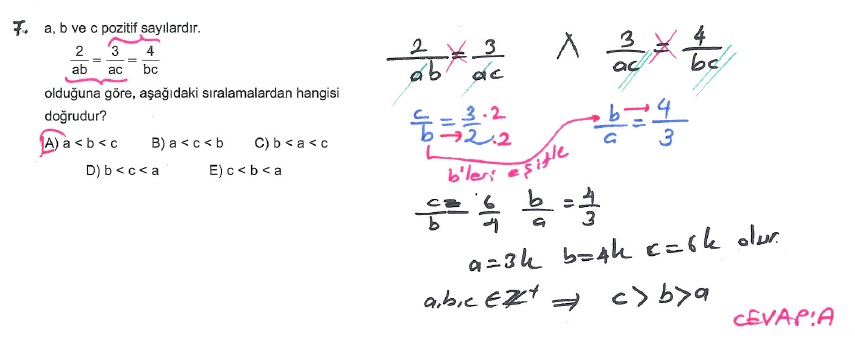 7. a, b ve c pozitif sayılardır.
2/ab = 3/ac = 4/bc
olduğuna göre, aşağıdaki sıralamalardan hangisi
doğrudur?
A) a < b < c B) a < c < b C) b < a < c
D) b < c < a E) c < b < a
2/ab = 3/ac ∧ 3/ac = 4/bc
c/b = 3·2/2·2 b/a = 4/3
b'leri eşitle
c/b = 6/4 b/a = 4/3
a=3k b=4k c=6k olur.
a,b,c ∈ Z⁺ ⇒ c > b > a
CEVAP:A